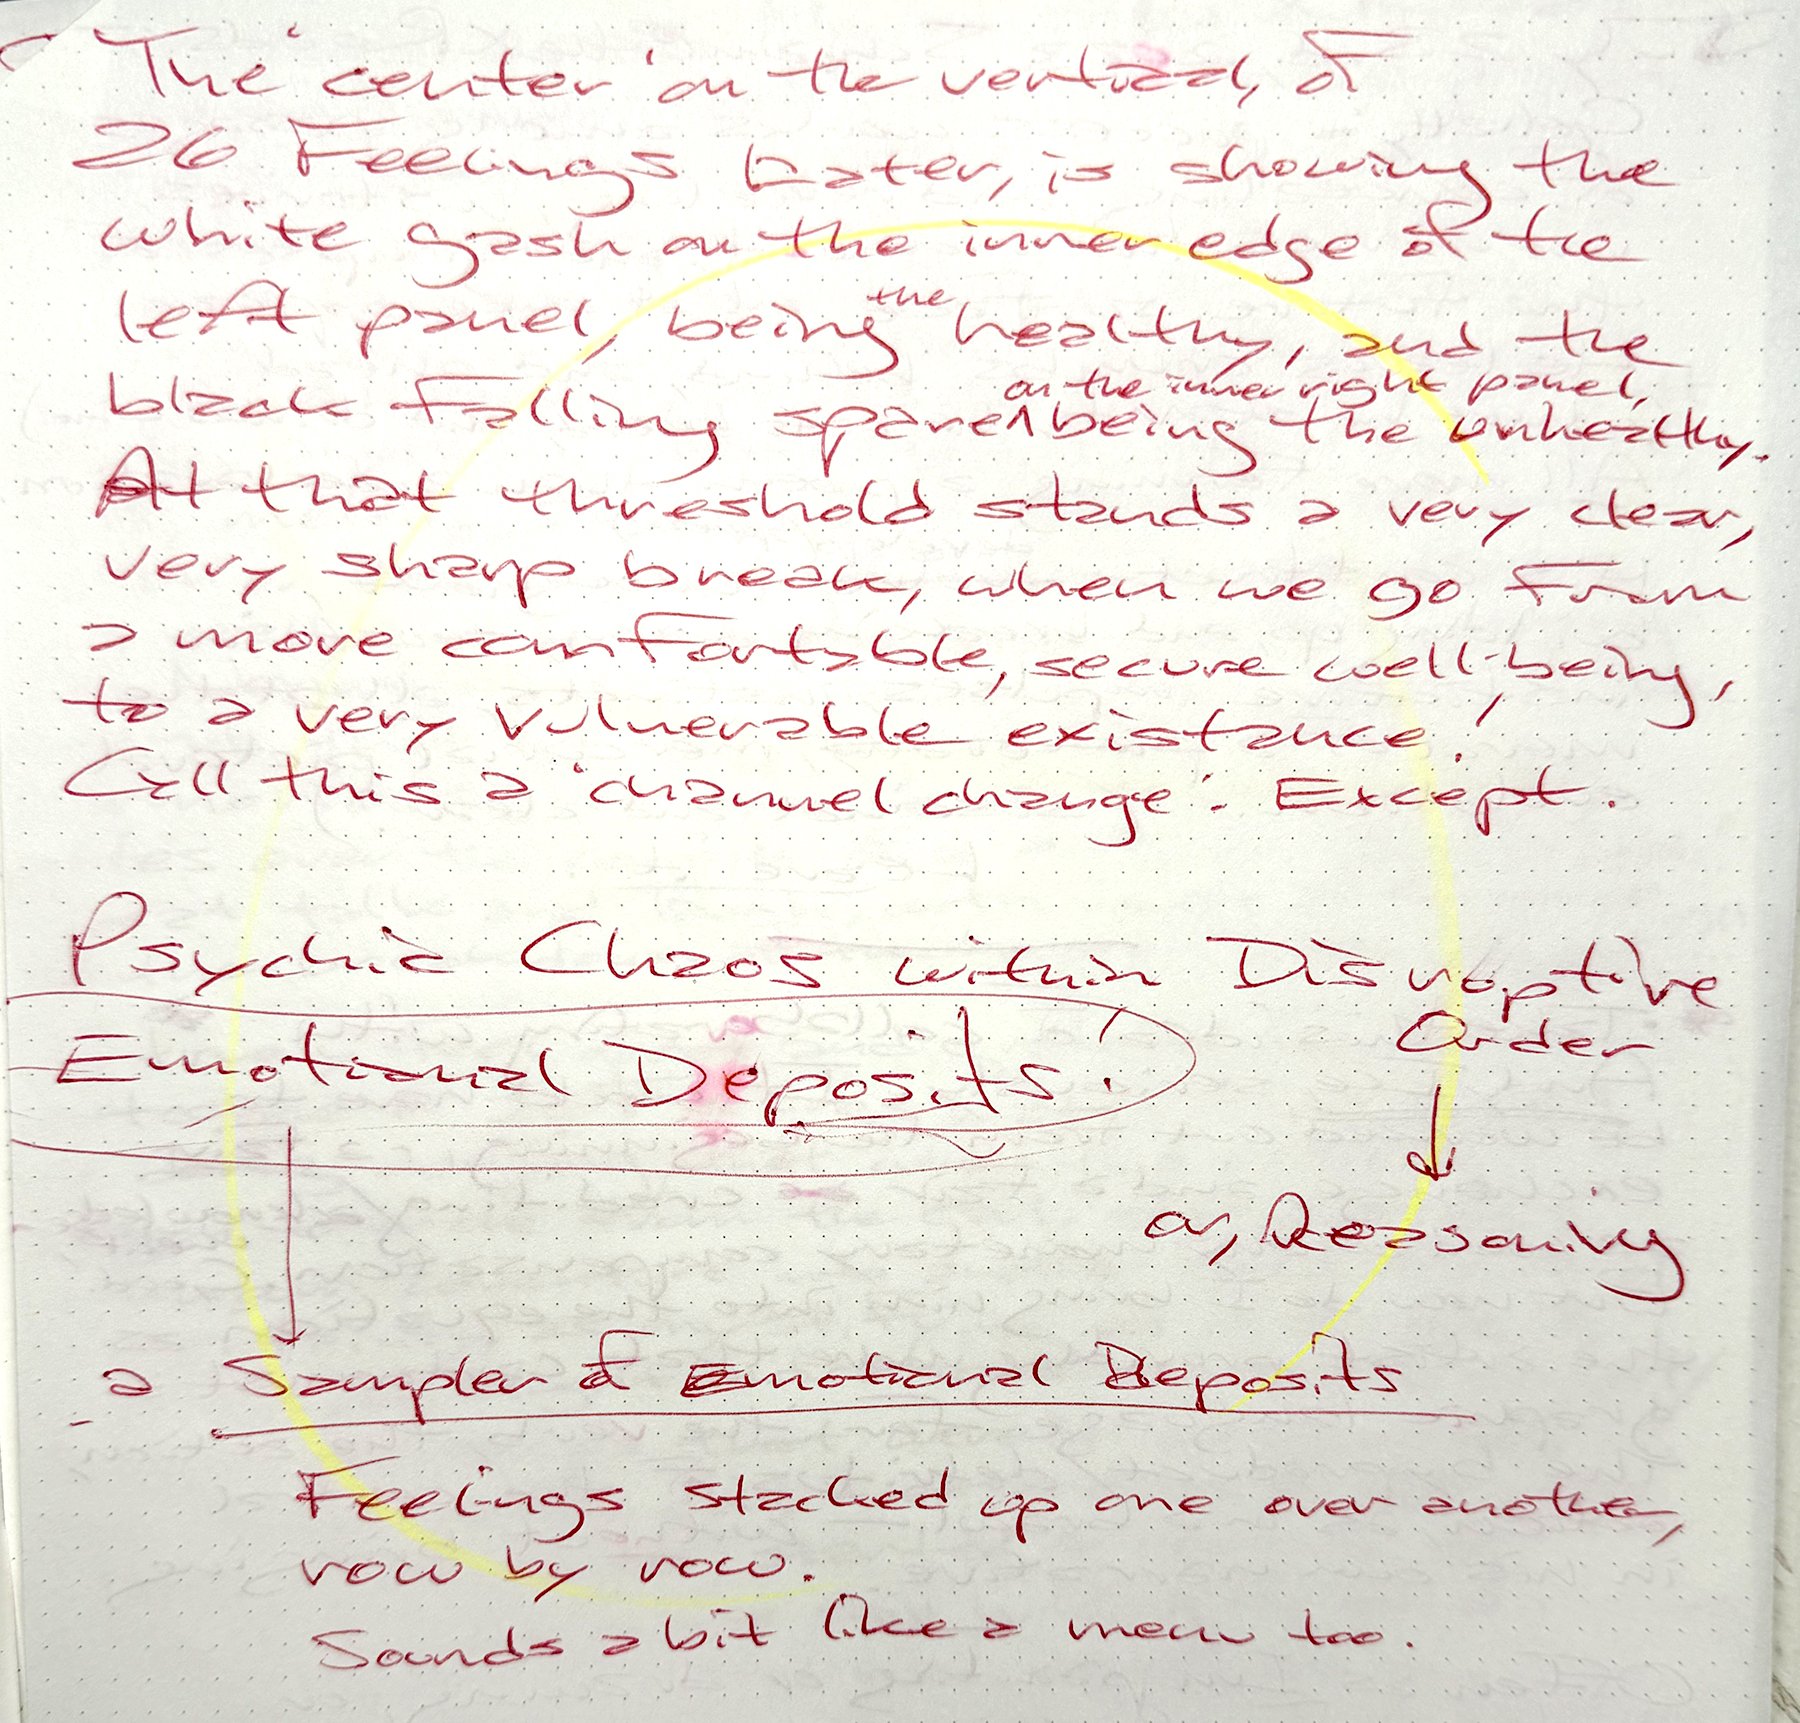 The 'center' on the vertical, of
26 Feelings Later, is showing the
white gash on the inner edge of the
left panel, being the healthy, and the
black falling spare on the inner right panel, being the unhealthy.
At that threshold stands a very clear,
very sharp break, when we go from
a more comfortable, secure well-being,
to a very vulnerable existance!
Call this a 'channel change'. Except.
Psychic Chaos within Disruptive
Order
Emotional Deposits!
or, Reasoning
a Sampler of Emotional Deposits
Feelings stacked up one over another,
row by row.
Sounds a bit like a menu too.